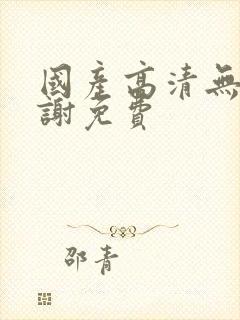 國產高清無
謝免費
邵青